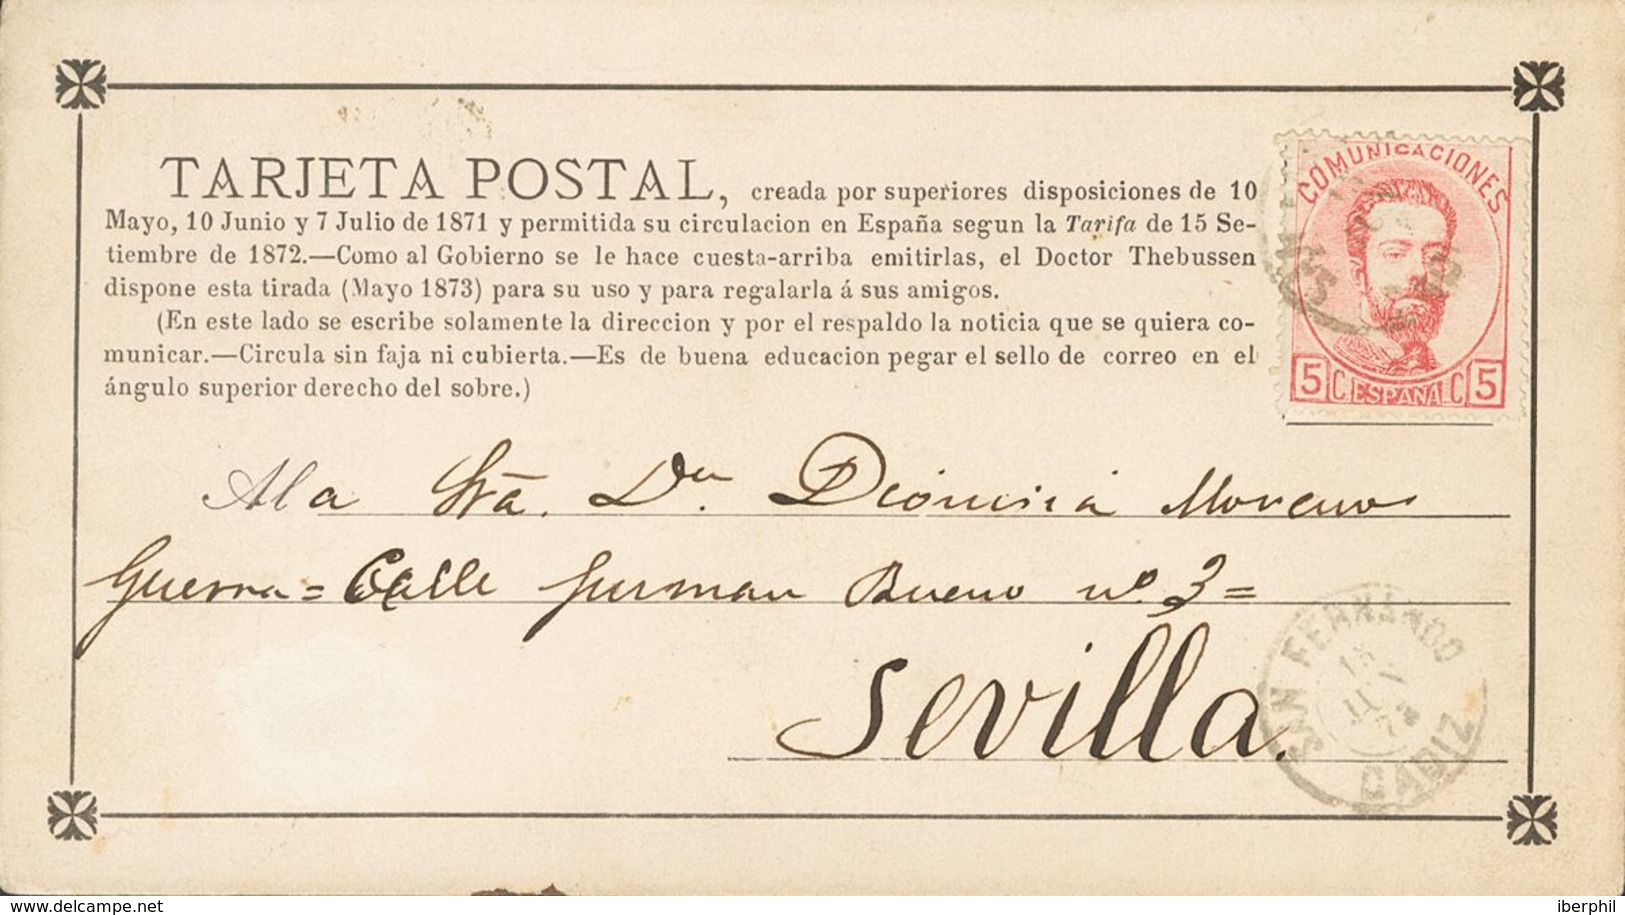 TARJETA POSTAL, creada por superiores disposiciones de 10
Mayo, 10 Junio y 7 Julio de 1871 y permitida su circulacion en España segun la Tarifa de 15 Se-
tiembre de 1872.—Como al Gobierno se le hace cuesta-arriba emitirlas, el Doctor Thebussen
dispone esta tirada (Mayo 1873) para su uso y para regalarla á sus amigos.
(En este lado se escribe solamente la direccion y por el respaldo la noticia que se quiera co-
municar.—Circula sin faja ni cubierta.—Es de buena educacion pegar el sello de correo en el
ángulo superior derecho del sobre.)
COMUNICACIONES
5 C. ESPAÑA C 5
A la Srta. Dña. Dionisia Moreno
Guerra = Calle Gusman Bueno nº 3 =
Sevilla.
SAN FERNANDO
18
JUN
73
CADIZ
www.delcampe.net
iberphil